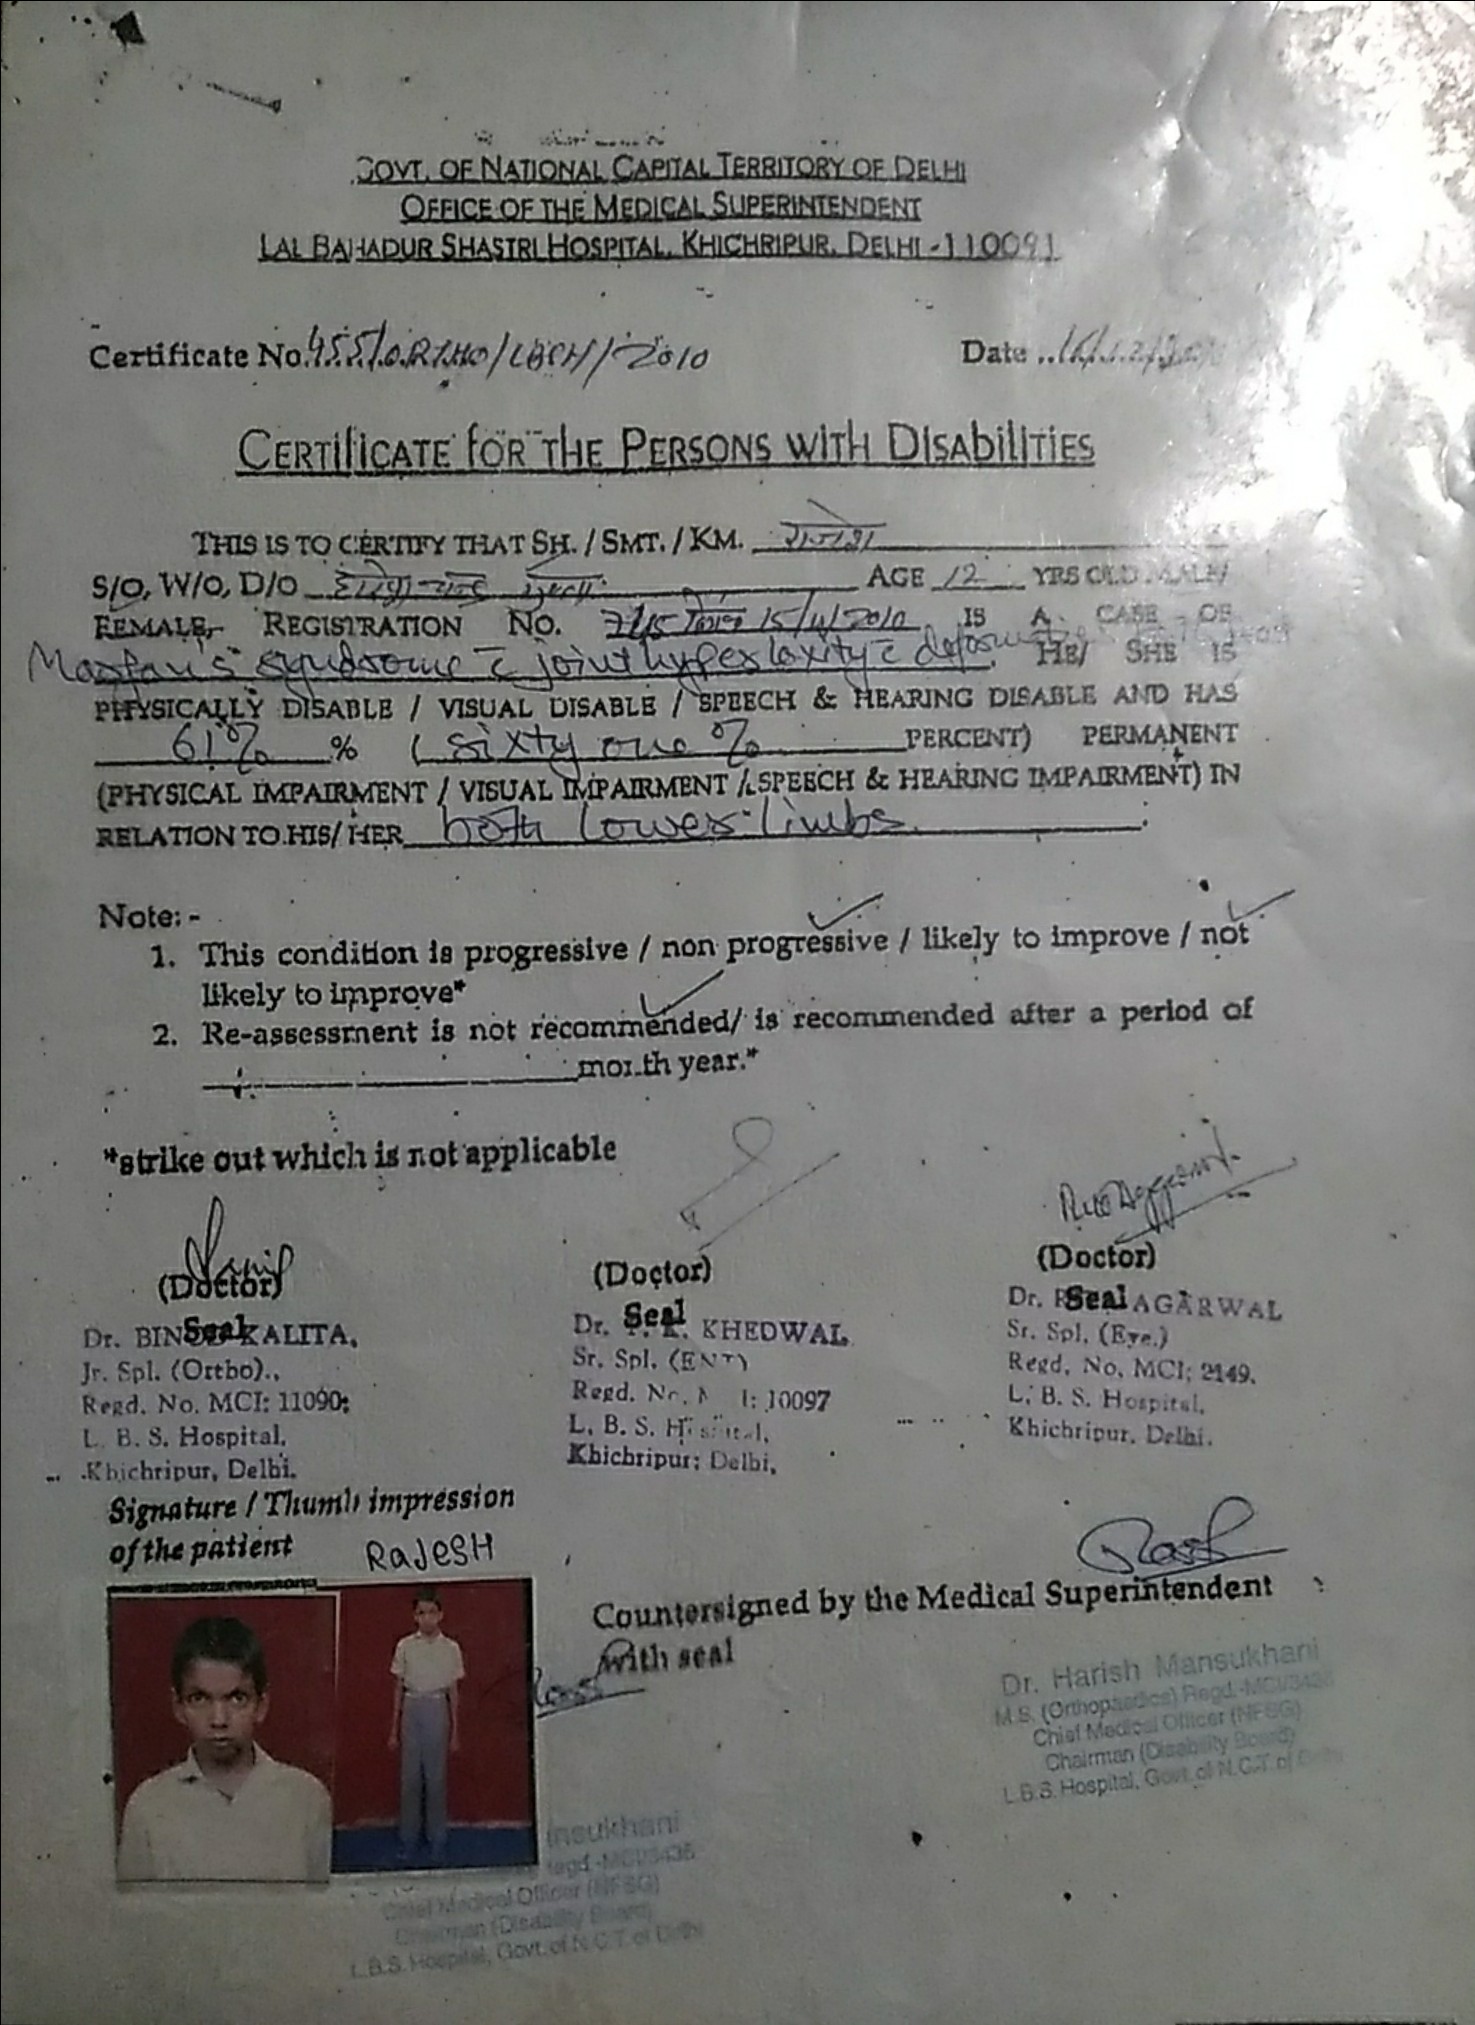 GOVT. OF NATIONAL CAPITAL TERRITORY OF DELHI
OFFICE OF THE MEDICAL SUPERINTENDENT
LAL BAHADUR SHASTRI HOSPITAL, KHICHRIPUR, DELHI - 110091
Certificate No. 455/ORTHO/LBSH/2010 Date ..16/12/
CERTIFICATE FOR THE PERSONS WITH DISABILITIES
THIS IS TO CERTIFY THAT SH. / SMT. / KM. राजेश
S/O, W/O, D/O AGE 12 YRS OLD MALE/
FEMALE, REGISTRATION NO. 15/11/2010 IS A CASE OF
Marfan's syndrome c̄ joint hyperlaxity c̄ HE/ SHE IS
PHYSICALLY DISABLE / VISUAL DISABLE / SPEECH & HEARING DISABLE AND HAS
61% % (sixty one % PERCENT) PERMANENT
(PHYSICAL IMPAIRMENT / VISUAL IMPAIRMENT / SPEECH & HEARING IMPAIRMENT) IN
RELATION TO HIS/ HER both lower limbs.
Note: -
1. This condition is progressive / non progressive / likely to improve / not
likely to improve*
2. Re-assessment is not recommended/ is recommended after a period of
month year.*
*strike out which is not applicable
(Doctor) (Doctor) (Doctor)
Seal Seal Seal
Dr. KALITA, Dr. KHEDWAL Dr. AGARWAL
Jr. Spl. (Ortho)., Sr. Spl. (ENT) Sr. Spl. (Eye.)
Regd. No. MCI: 11090; Regd. No. 10097 Regd. No. MCI: 2149.
L. B. S. Hospital, L. B. S. Hospital, L. B. S. Hospital,
Khichripur, Delhi. Khichripur; Delhi, Khichripur, Delhi.
Signature / Thumb impression
of the patient RAJESH
Countersigned by the Medical Superintendent
with seal
Dr. Harish Mansukhani
M.S. (Orthopaedics) Regd.
Chief Medical Officer (NFSG)
Chairman (Disability Board)
L.B.S. Hospital, Govt. of N.C.T. of Delhi
nsukhani
Chief Medical Officer (NFSG)
Chairman (Disability Board)
L.B.S. Hospital, Govt. of N.C.T. of Delhi